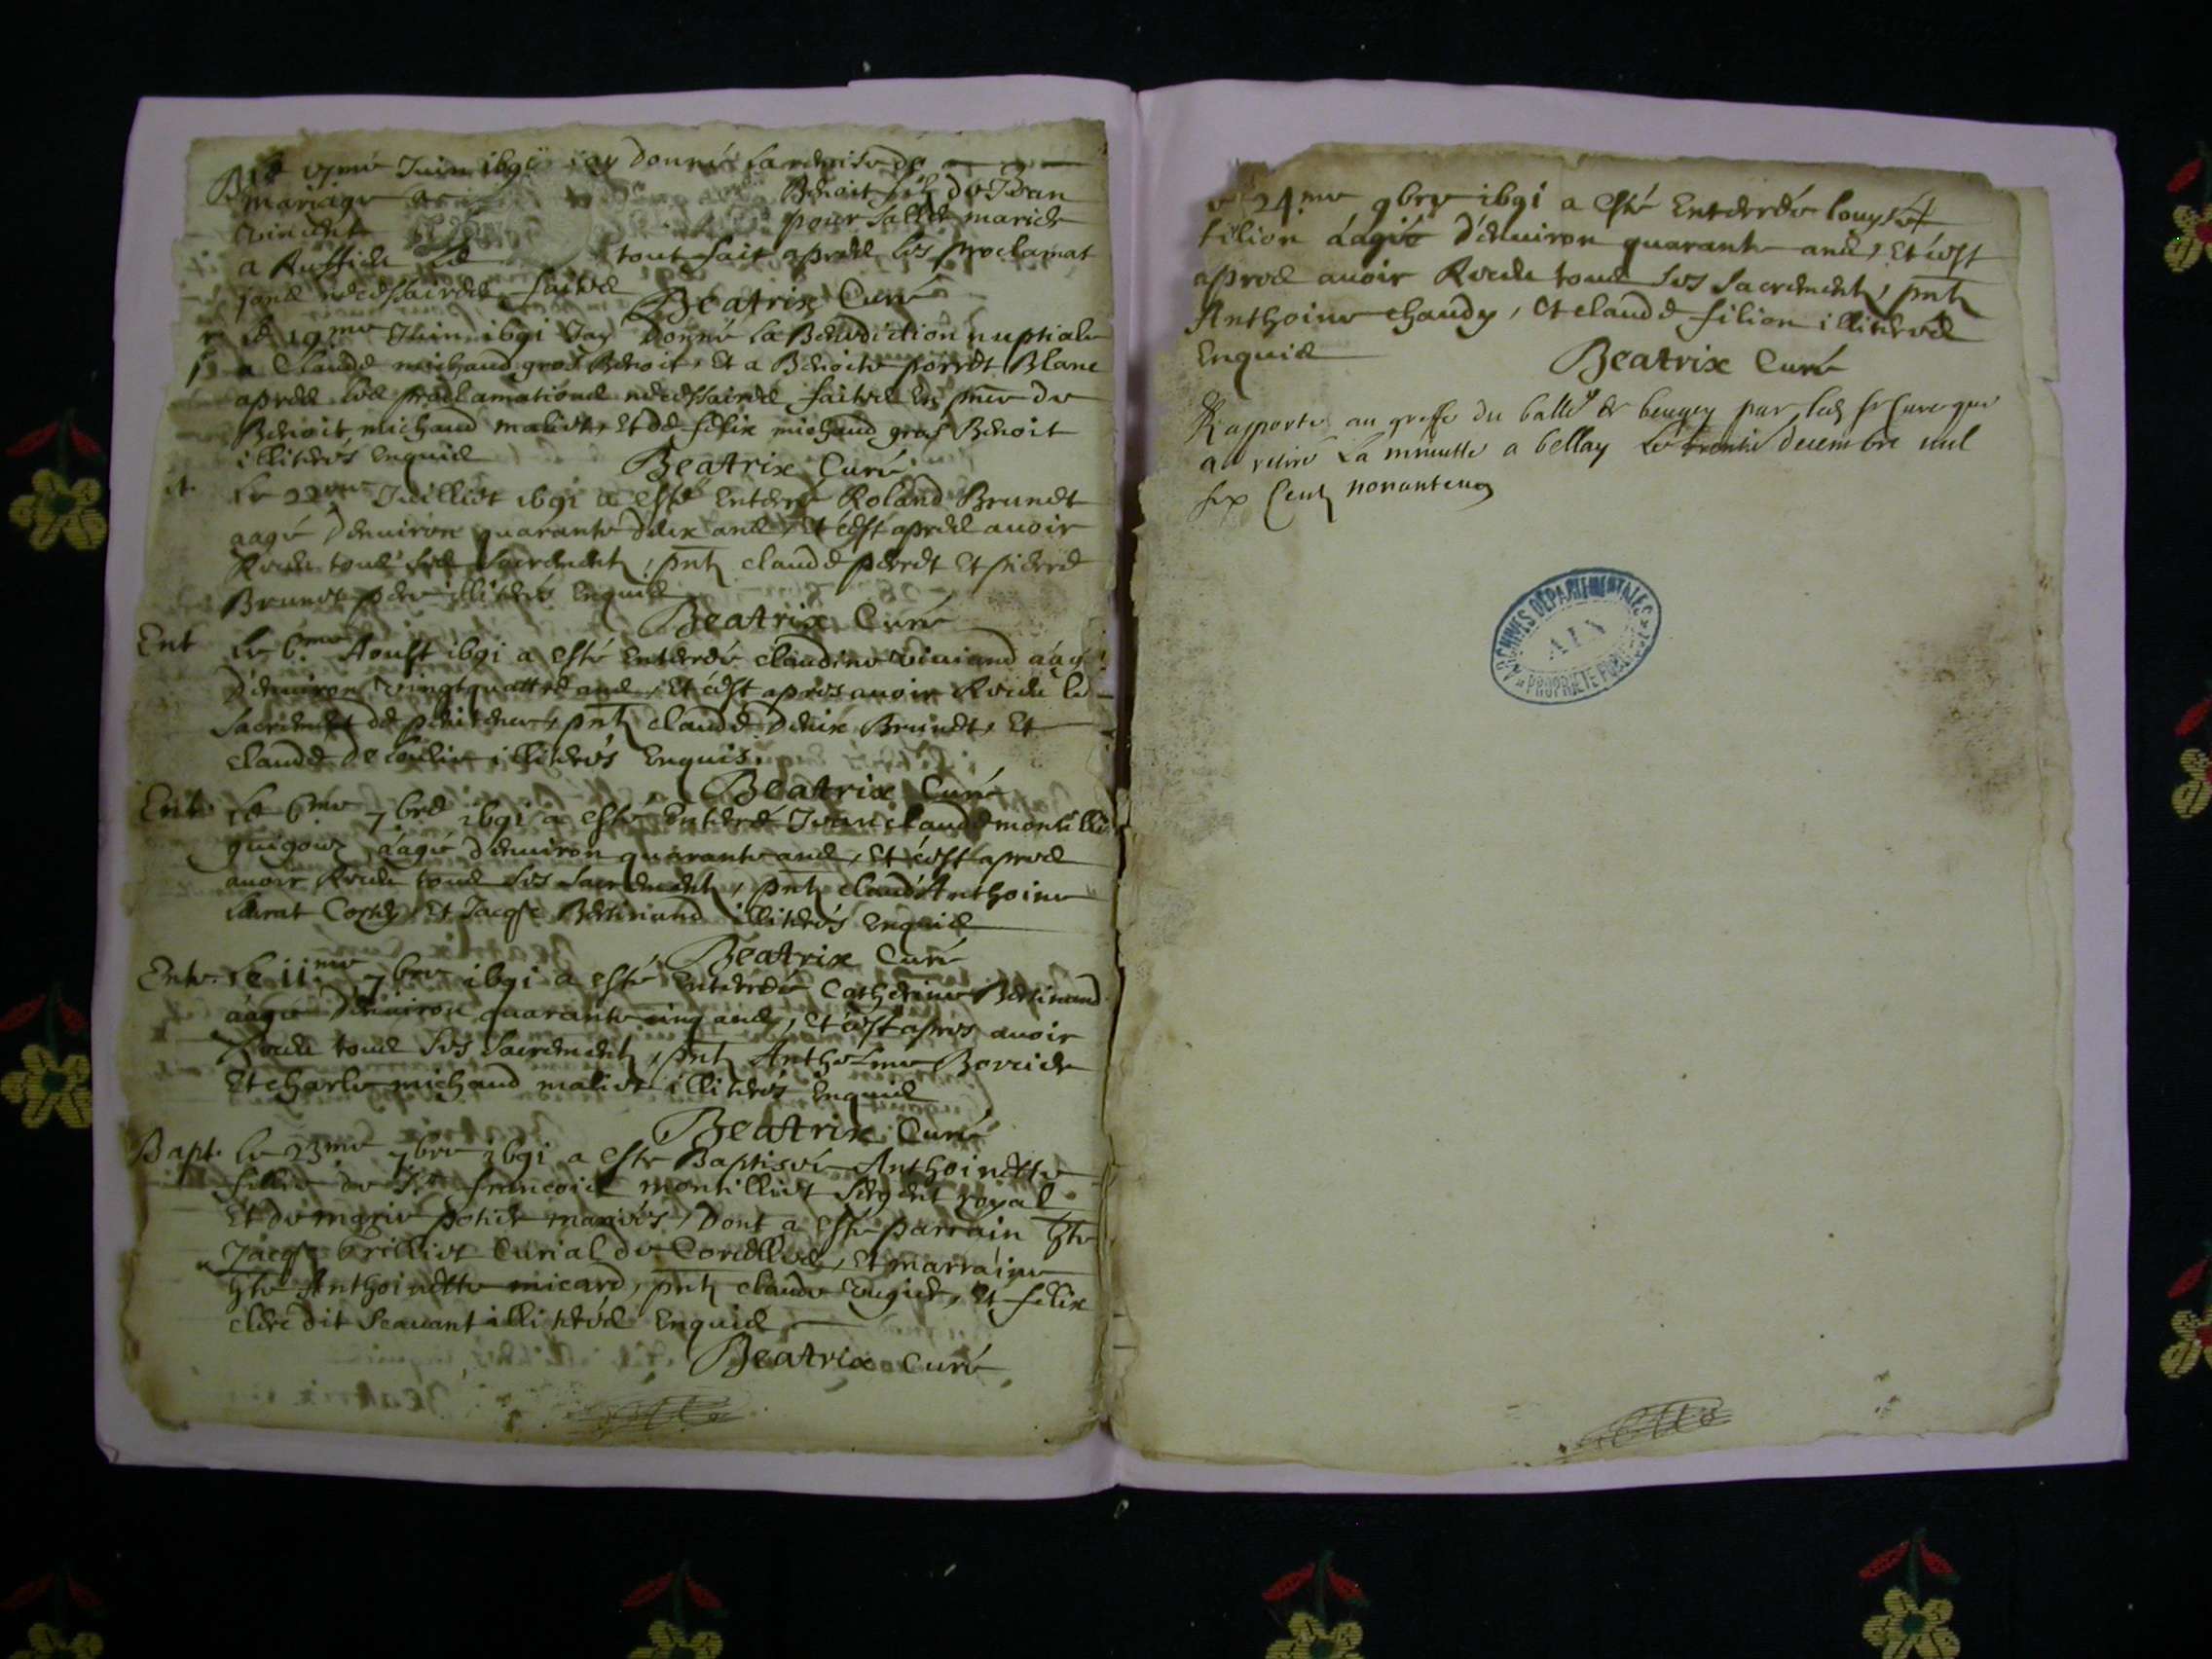 Le 17me Juin 1691 iay donné la remise de
mariage Benoit filz de Jean
Vincent pour saller marier
a Ruffieu tout fait apres les proclamat
ions necessaires faites
Beatrix Curé
le 19me Juin 1691 Jay donné la Benediction nuptiale
a Claude michaud gros Benoit, Et a Benoite perret Blanc
apres les proclamations necessaires faites En pnce de
Benoit michaud maliet, Et de felix michaud gros Benoit
illiteres Enquis
Beatrix Curé
Le 22me Juilliet 1691 a esté Enterré Roland Brunet
aagé denuiron quarante deux ans, Et cest apres auoir
Receu tous ses Sacrements, pnts claude perret Et pierre
Brunet illiterés Enquis
Beatrix Curé
Ent Le 6me Aoust 1691 a esté Enterrée claudine viuiand aagée
denuiron vingtquattre ans, Et cest apres auoir Receu le
Sacrement de penitence, pnts claude Brunet, Et
claude illiterés Enquis.
Beatrix Curé
Ent. Le 6me 7bre 1691 a esté Enterré Jean claude montillie
guigouz aagé denuiron quarante ans, Et cest apres
auoir Receu tous ses Sacrements, pnts claud Anthoine
Et Jacqs Bertinand illiterés Enquis
Beatrix Curé
Ente. Le 11me 7bre 1691 a esté Enterrée Catherine Bertinand
aagée denuiron quarante cinq ans, Et cest apres auoir
Receu tous ses Sacrements, pnts Anthelme
Et charle michaud maliet illiterés Enquis
Beatrix Curé
Bapt. Le 23me 7bre 1691 a este Baptisée Anthoinette
fillie de Sr francois montilliet Sergent royal
Et de marie mariés, Dont a este parrain hte
Jacqs brilliet Curial de Corcelles, Et marraine
hte Anthoinette micard, pnts claude Et felix
clerc dit Scauant illiterés Enquis
Beatrix Curé
24me 9bre 1691 a esté Enterrée louyse
filion aagée denuiron quarante ans, Et cest
apres auoir Receu tous ses Sacrements, pnts
Anthoine chaudy, Et claude filion illiteres
Enquis
Beatrix Curé
Rapporte au greffe du balle de beugey par led sr Curé qui
a retiré La minutte a bellay le trente decembre mil
six Cent nonanteung
ARCHIVES DEPARTEMENTALES
AIN
PROPRIETE PUBLIQUE